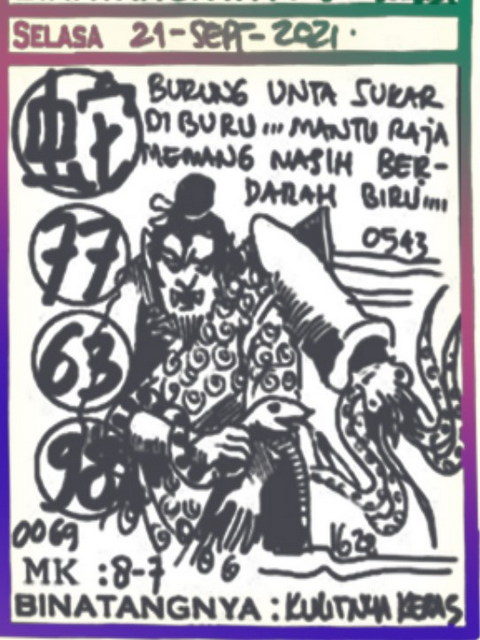 SELASA 21-SEPT-2021.
BURUNG UNTA SUKAR
DI BURU... MANTU RAJA
MEMANG NASIH BER-
DARAH BIRU....
0543
77
63
98
0069
1628
MK :8-7
66
BINATANGNYA : KULITNYA KERAS